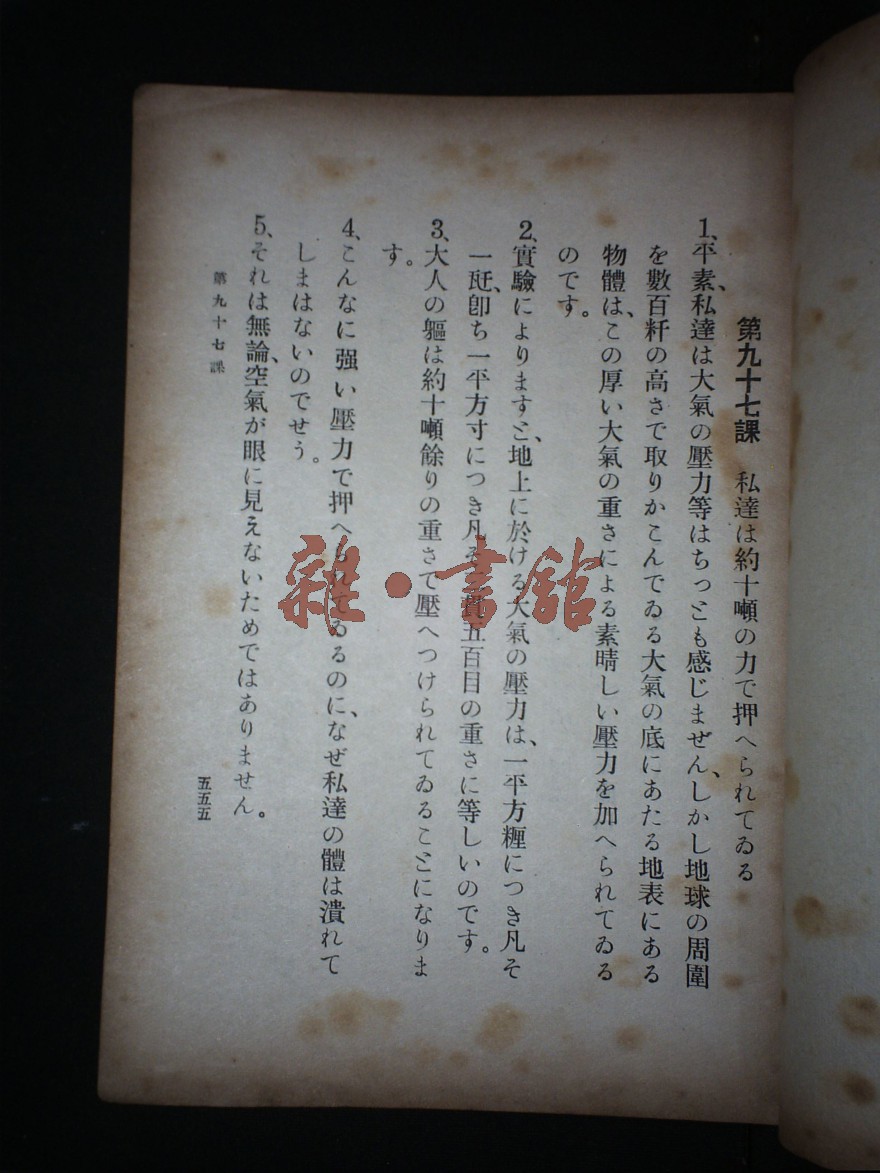 第九十七課　私達は約十噸の力で押へられてゐる
1、平素、私達は大氣の壓力等はちっとも感じまぜん、しかし地球の周圍
を數百粁の高さで取りかこんでゐる大氣の底にあたる地表にある
物體は、この厚い大氣の重さによる素晴しい壓力を加へられてゐる
のです。
2、實驗によりますと、地上に於ける大氣の壓力は、一平方糎につき凡そ
一瓩、卽ち一平方寸につき凡そ 貫五百目の重さに等しいのです。
3、大人の軀は約十噸餘りの重さで壓へつけられてゐることになりま
す。
4、こんなに强い壓力で押へられてゐるのに、なぜ私達の體は潰れて
しまはないのでせう。
5、それは無論、空氣が眼に見えないためではありません。
第九十七課
五五五
雜·書館